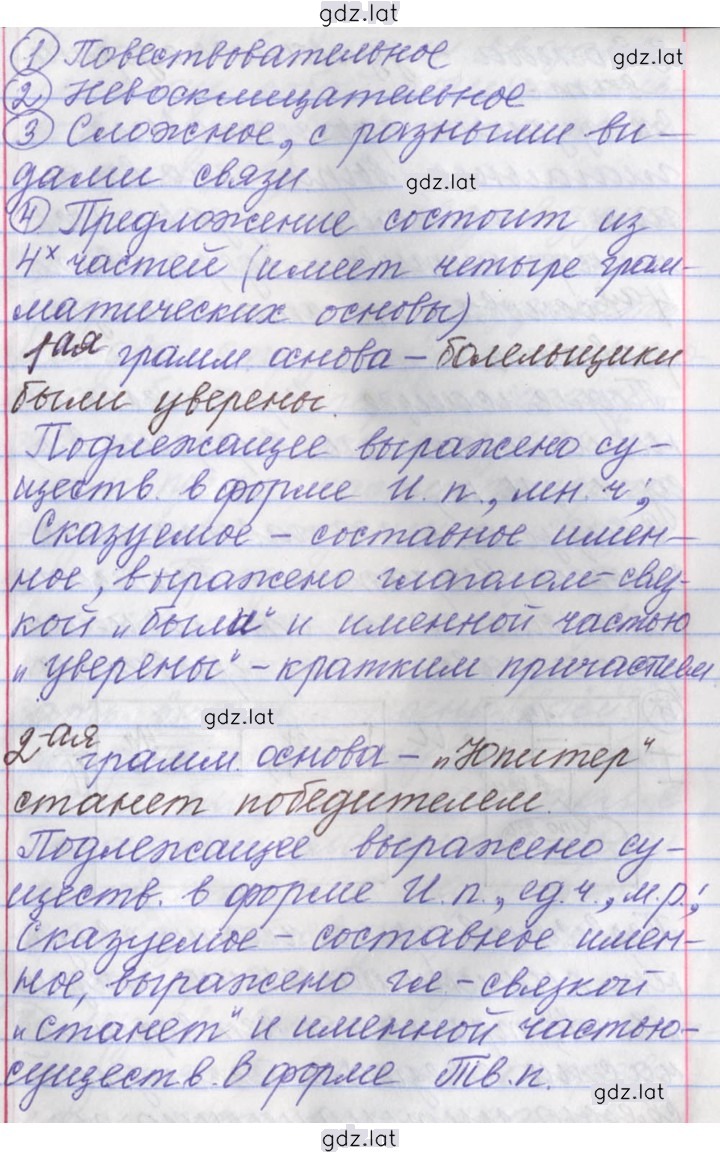 gdz.lat
① Повествовательное gdz.lat
② Невосклицательное
③ Сложное, с разными ви-
дами связи gdz.lat
④ Предложение состоит из
4х частей (имеет четыре грам-
матических основы)
1ая грамм. основа – болельщики
были уверены.
Подлежащее выражено су-
ществ. в форме И.п., мн.ч.;
Сказуемое – составное имен-
ное, выражено глаголом-связ-
кой „были“ и именной частью
„уверены“ – кратким причастием
gdz.lat
2-ая грамм. основа – „Юпитер“
станет победителем.
Подлежащее выражено су-
ществ. в форме И.п., ед.ч., м.р.;
Сказуемое – составное имен-
ное, выражено гл – связкой
„станет“ и именной частью-
существ. в форме Тв.п.
gdz.lat
gdz.lat